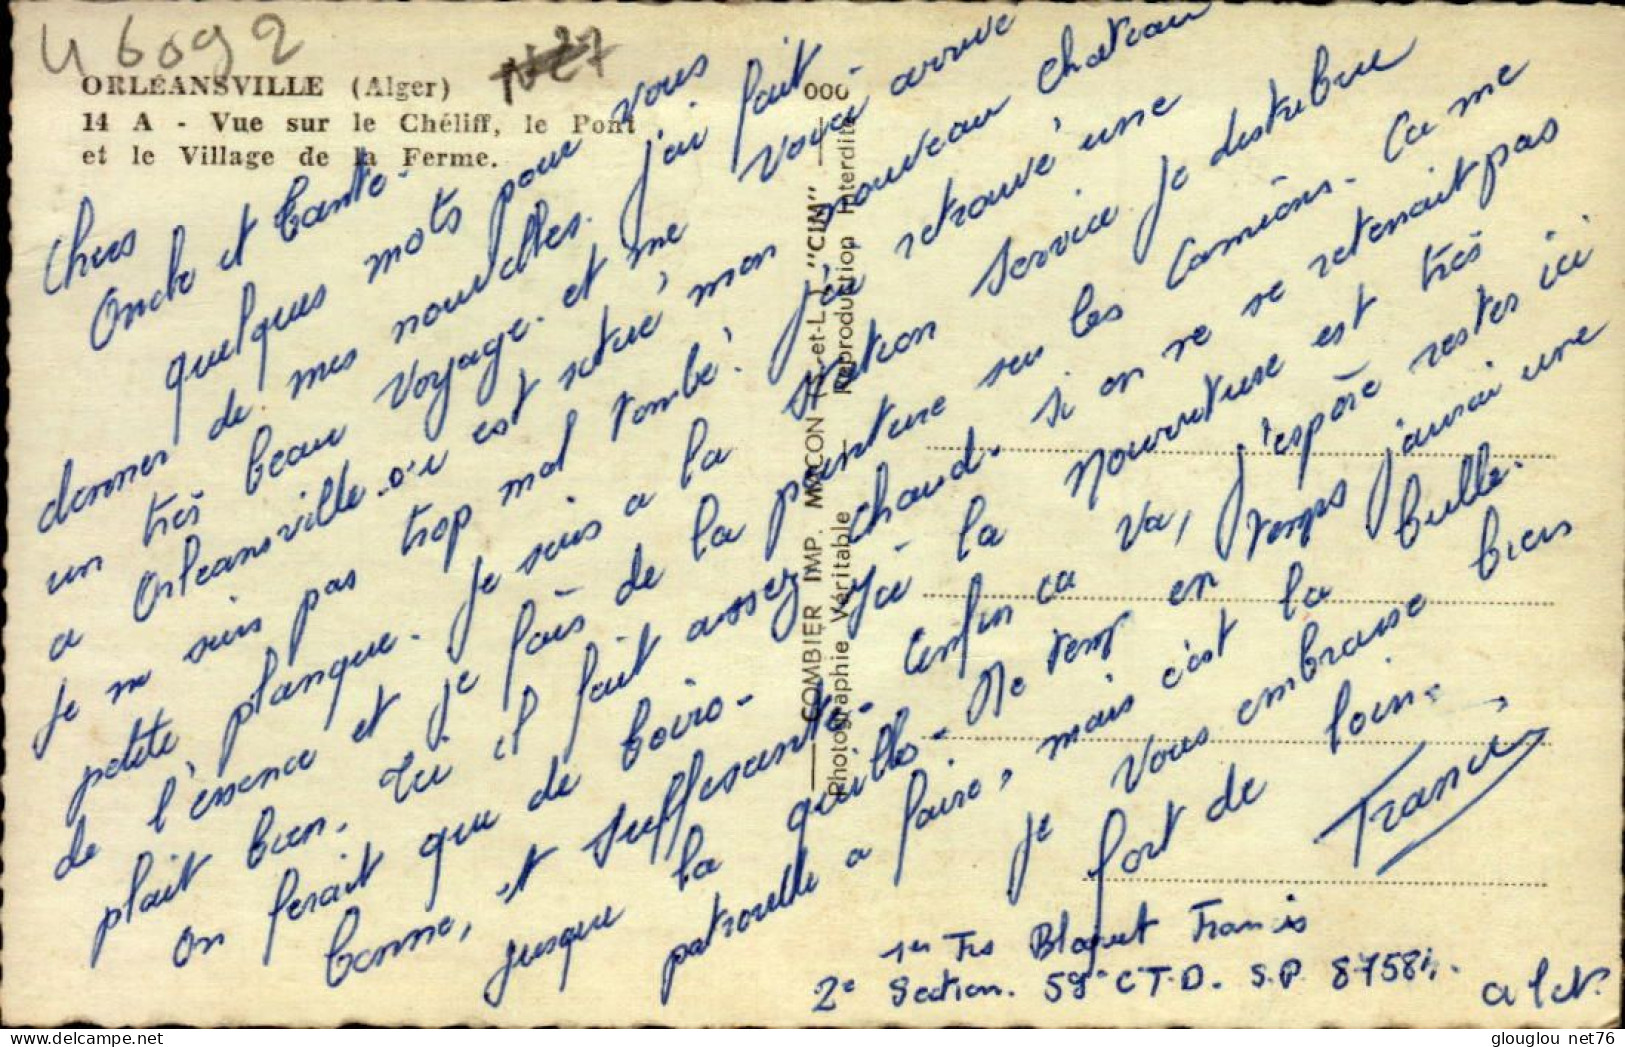 46092
N-27
ORLÉANSVILLE (Alger)
14 A - Vue sur le Chéliff, le Pont
et le Village de la Ferme.
Chers
Oncle et Tante.
quelques mots pour vous
donner de mes nouvelles. j'ai fait
un très beau voyage. et me voici arrivé
a Orléansville. où est situé mon nouveau chateau
Je ne suis pas trop mal tombé. J'ai retrouvé une
petite planque. Je suis a la station service je distribue
de l'essence et je fais de la peinture sur les camions. Ca me
plait bien. Ici il fait assez chaud. Si on ne se retenait pas
on ferait que de boire. Ici la nourriture est très
bonne, et suffisante. Enfin ca va, j'espère rester ici
jusque la quille. De temp en temps j'aurai une
patrouille a faire, mais c'est la bulle.
je vous embrasse bien
fort de loin.
Francis
1er Trs Blaquet Francis
2e Section. 59e C.T.D. S.P. 87584.
a l c N.
COMBIER IMP. MACON (S.-et-L.) "CIM"
Photographie Véritable - Reproduction Interdite
000
glouglou net76